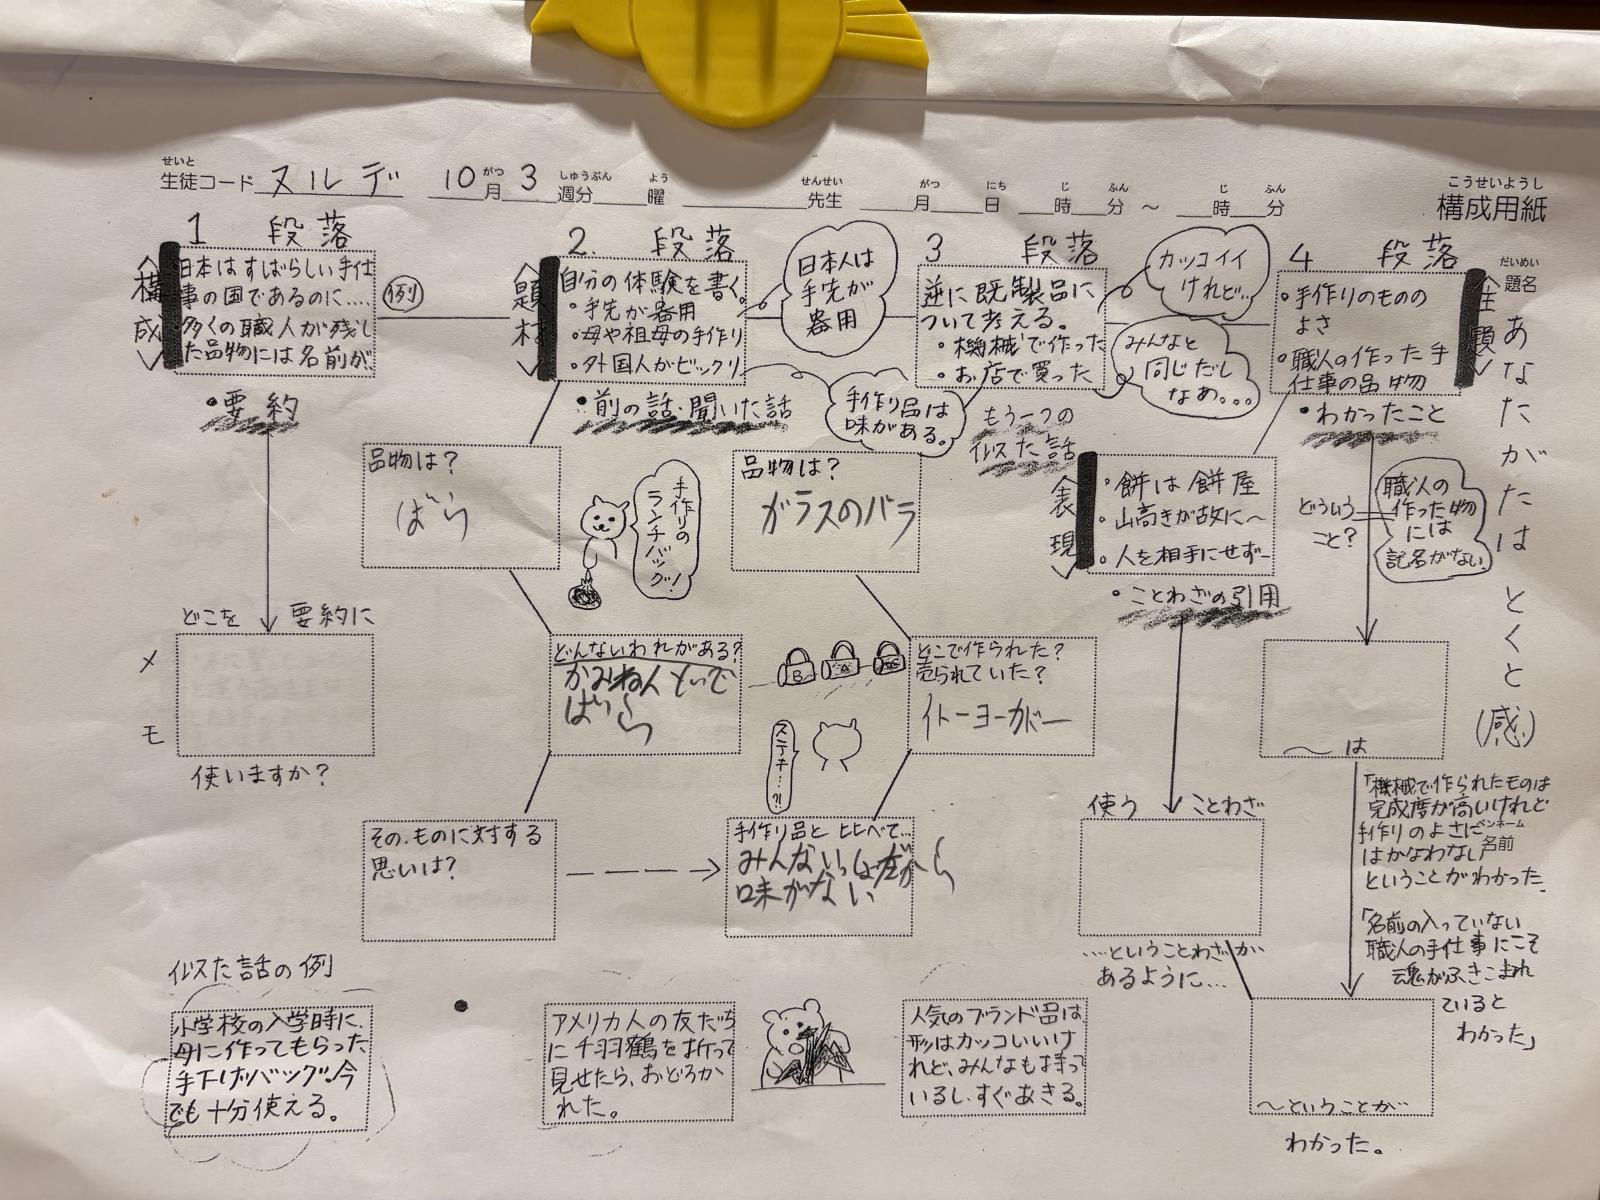 せいと
生徒コード ヌルデ 10 月 3 週分 曜 先生 月 日 時 分 ～ 時 分
がつ しゅうぶん よう せんせい がつ にち じ ふん じ ふん
こうせいようし
構成用紙
だいめい
題名
あなたがたは とくと(感)
ペンネーム
名前
1 段落
〈構成〉
日本はすばらしい手仕
事の国であるのに....
多くの職人が残し
た品物には名前が、
例
・要約
どこを 要約に
使いますか？
メモ
2. 段落
〈題材〉
自分の体験を書く。
・手先が器用
・母や祖母の手作り
・外国人がビックリ
日本人は
手先が
器用
・前の話・聞いた話
手作り品は
味がある。
品物は？
ばら
手作りの
ランチバック！
どんないわれがある？
ばら
その.ものに対する
思いは？
3 段落
逆に既製品に
ついて考える。
・機械で作った
・お店で買った
カッコイイ
けれど…
みんなと
同じだし
なぁ。。。
もう一つの
似た話
品物は？
ガラスのバラ
B A
ステキ…?!
どこで作られた？
売られていた？
イトーヨーカドー
手作り品と比べて…
みんないっしょだから
味がない
〈表現〉
・餅は餅屋
・山高きが故に～
・人を相手にせず～
・ことわざの引用
使う ことわざ
....ということわざが
あるように…
4 段落
〈主題〉
・手作りのものの
よさ
・職人の作った手
仕事の品物
・わかったこと
どういう
こと？
職人の
作った物
には
記名がない。
～は
「機械で作られたものは
完成度が高いけれど
手作りのよさに
はかなわない
ということがわかった.
「名前の入っていない
職人の手仕事にこそ
魂がふきこまれ
ていると
わかった」
～ということが
わかった。
似た話の例
小学校の入学時に、
母に作ってもらった
手下げバッグ。今
でも十分使える。
アメリカ人の友だち
に千羽鶴を折って
見せたら、おどろか
れた。
人気のブランド品は
形はカッコいいけ
れど、みんなも持って
いるし、すぐあきる。